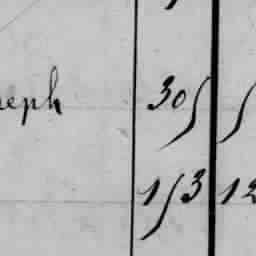 eph 30/ /
1/3 12